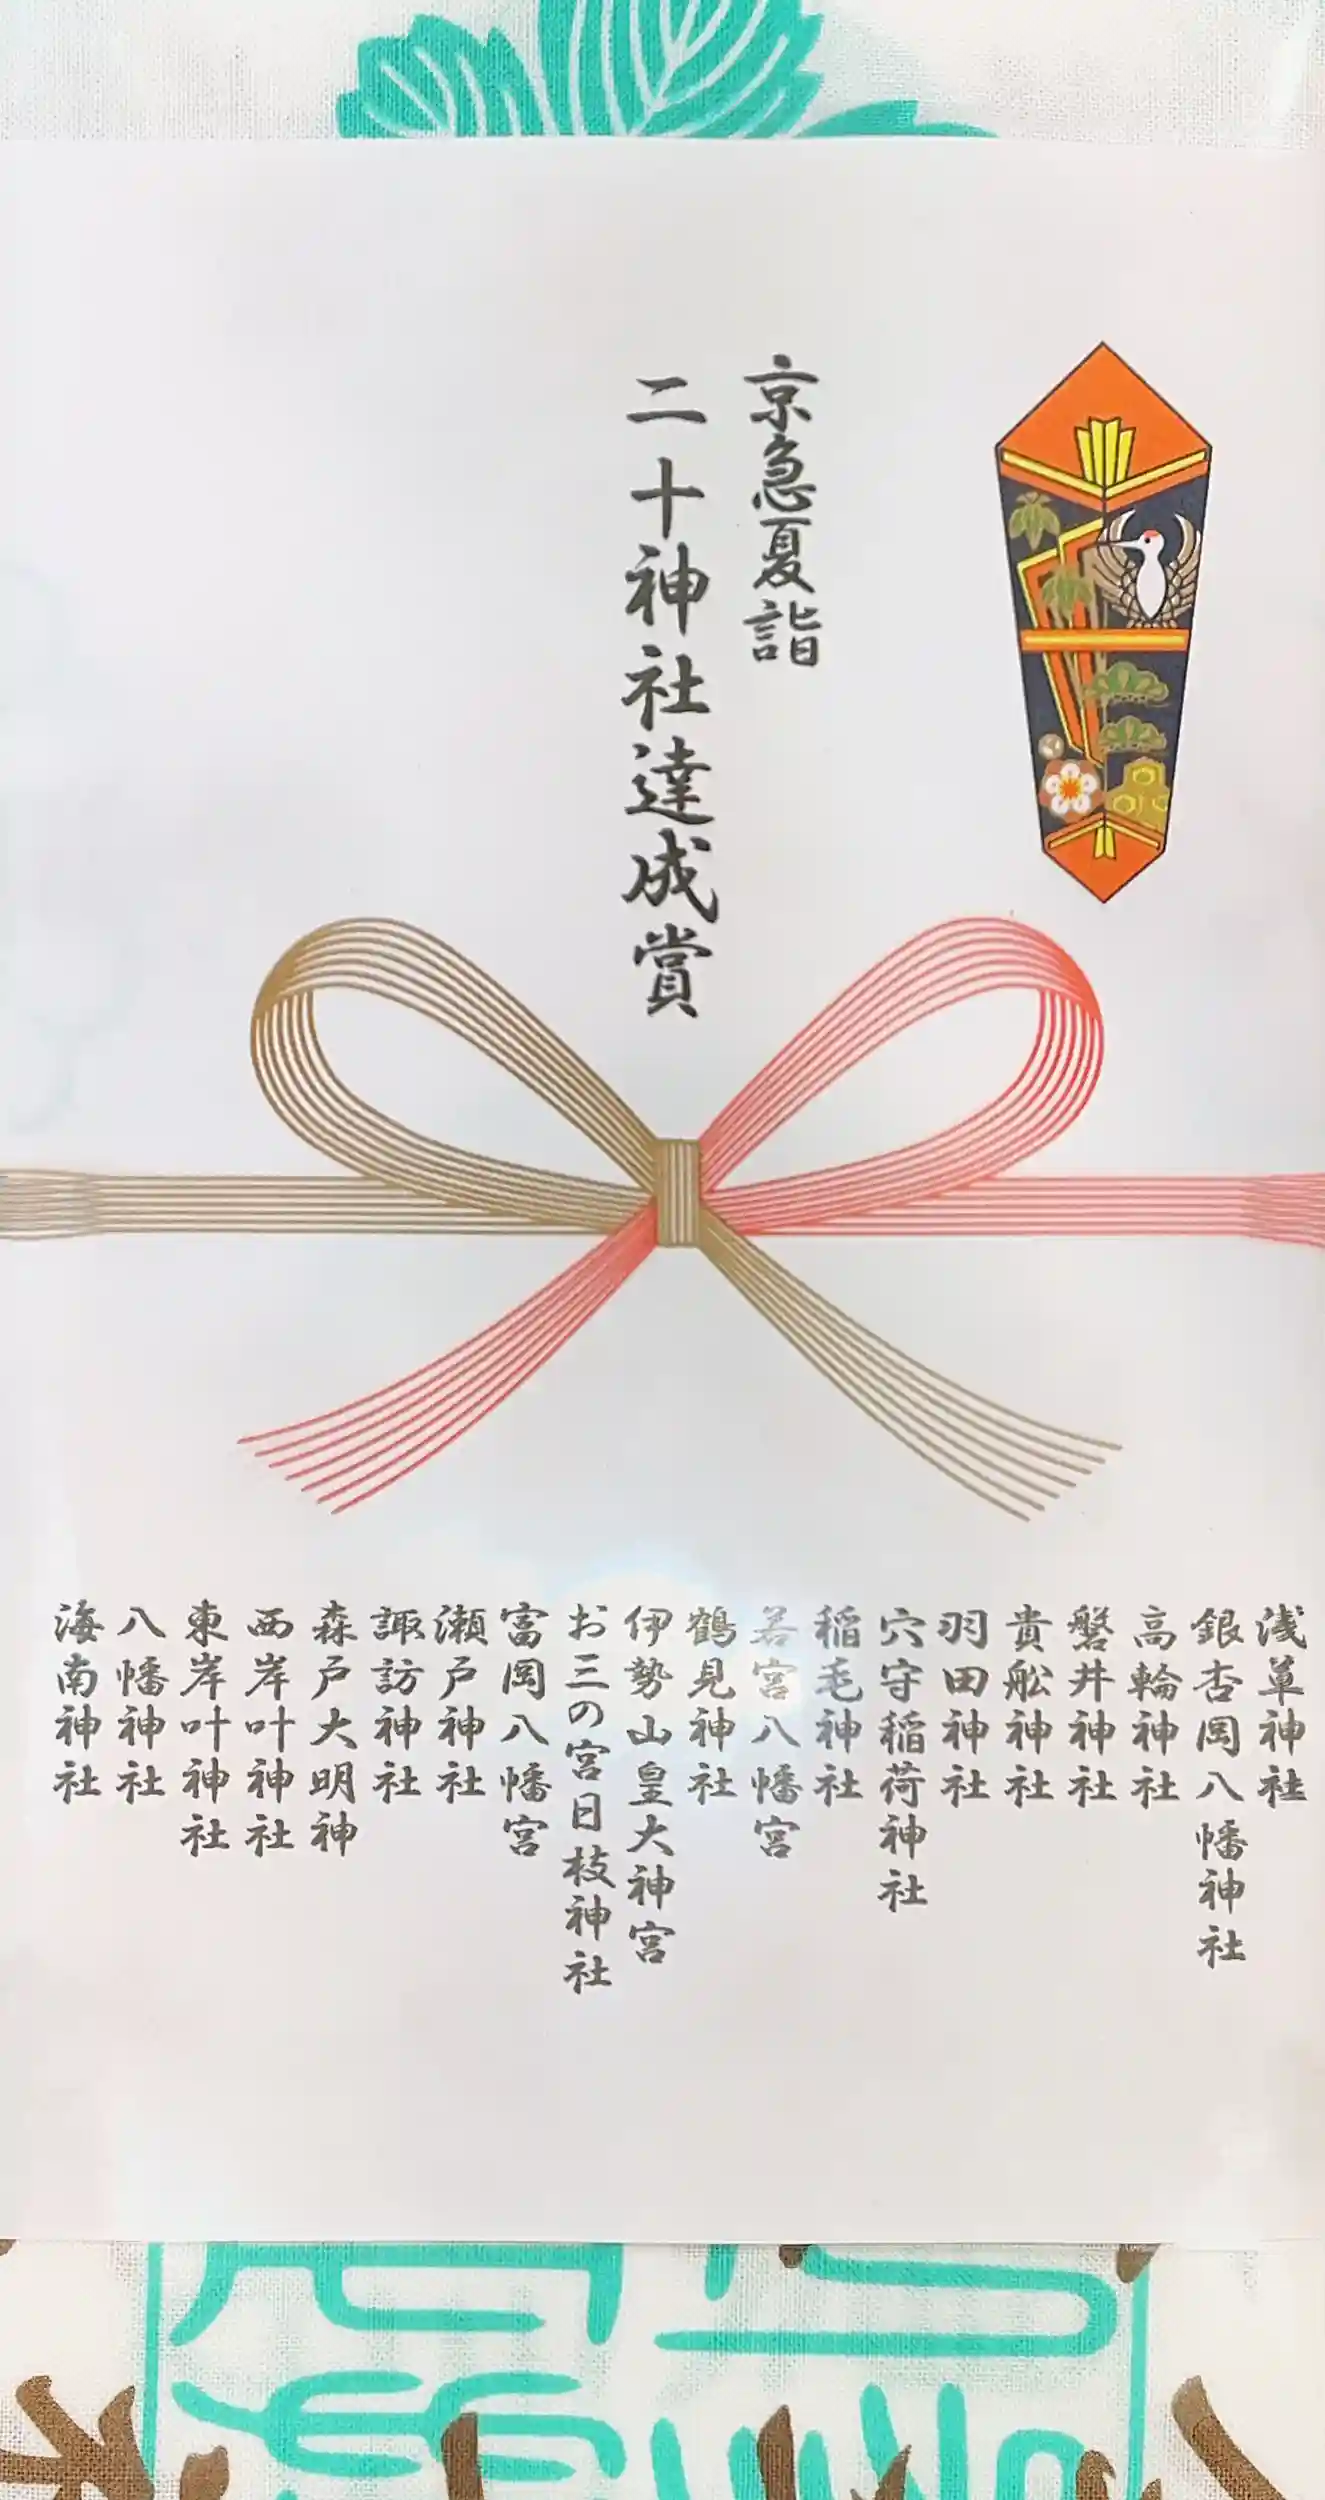 京急夏詣
二十神社達成賞
浅草神社
銀杏岡八幡神社
高輪神社
磐井神社
貴舩神社
羽田神社
穴守稲荷神社
稲毛神社
若宮八幡宮
鶴見神社
伊勢山皇大神宮
お三の宮日枝神社
富岡八幡宮
瀬戸神社
諏訪神社
森戸大明神
西岸叶神社
東岸叶神社
八幡神社
海南神社